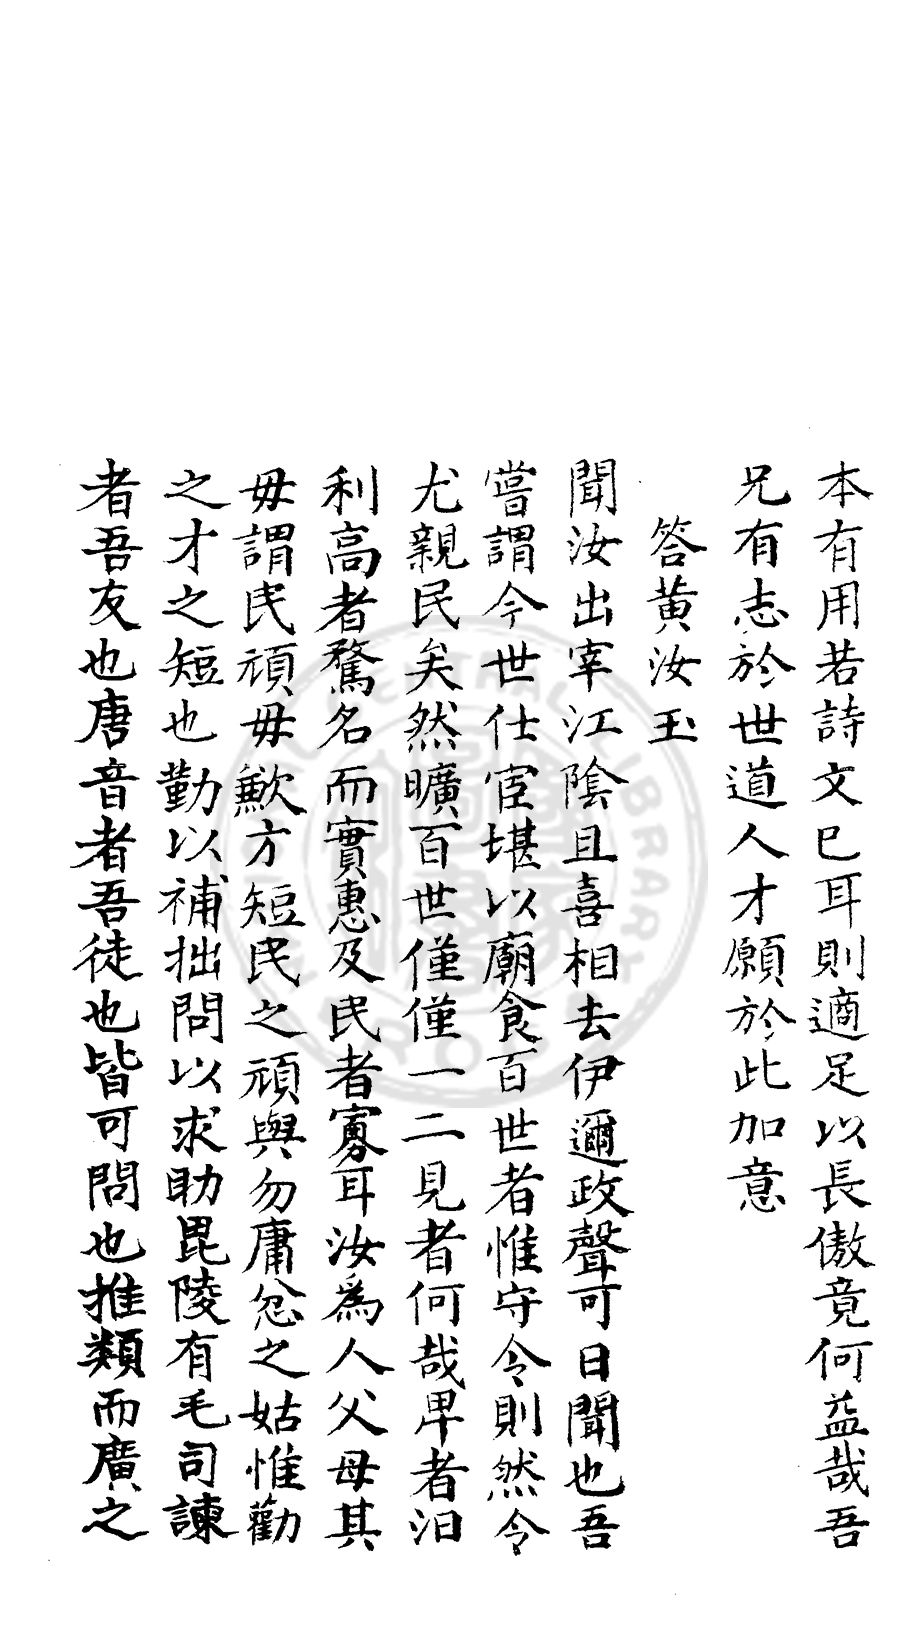 本有用若詩文已耳則適足以長傲竟何益哉吾
兄有志於世道人才願於此加意
答黄汝玉
聞汝出宰江陰且喜相去伊邇政聲可日聞也吾
嘗謂今世仕宦堪以廟食百世者惟守令則然令
尤親民矣然曠百世僅僅一二見者何哉卑者汩
利高者騖名而實惠及民者寡耳汝爲人父母其
毋謂民頑毋歎方短民之頑與勿庸忿之姑惟勸
之才之短也勤以補拙問以求助毘陵有毛司諫
者吾友也唐音者吾徒也皆可問也推類而廣之